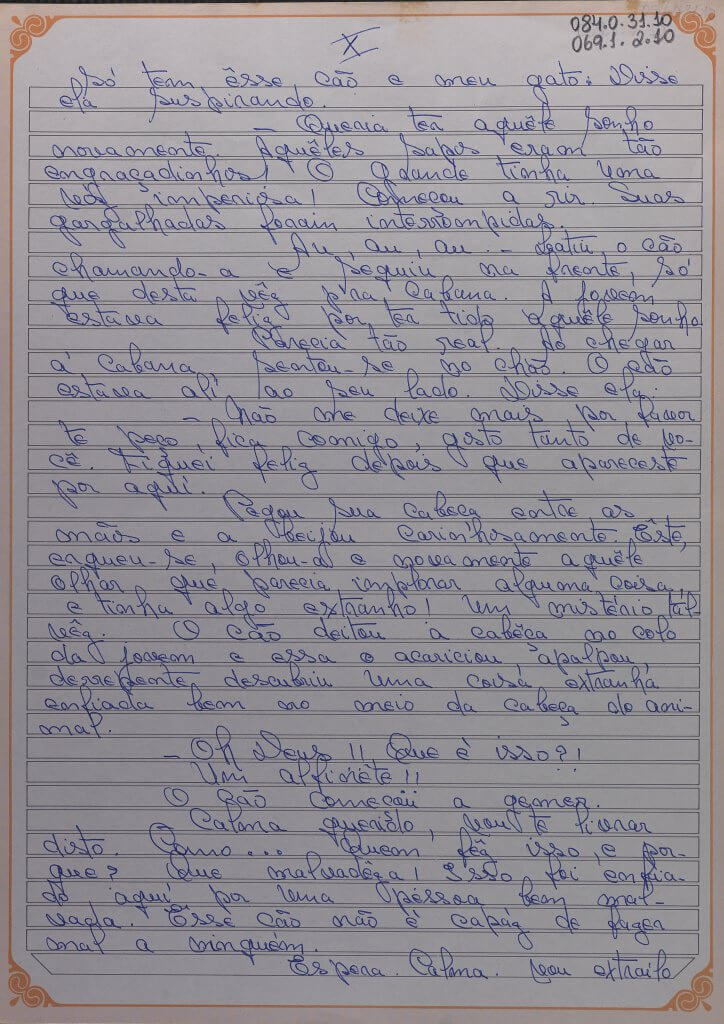 084.0.31.10
069.1.2.10
X
Só tem êsse cão e meu gato. Disse
ela suspirando.
— Queria ter aquêle sonho
novamente. Aquêles sapos eram tão
engraçadinhos! O grande tinha uma
vós imperiosa! Começou a rir. Suas
gargalhadas foram interrompidas.
Au, au, au — latiu, o cão
chamando-a e seguiu na frente, só
que desta vêz pra cabana. A jovem
estava feliz por ter tido aquêle sonho
Parecia tão real. Ao chegar
á cabana sentou-se no chão. O cão
estava alí ao seu lado. Disse ela:
— Não me deixe mais por favor
te peço, fica comigo, gosto tanto de vo-
cê. Fiquei feliz depois que apareceste
por aqui.
Pegou sua cabeça entre as
mãos e a beijou carinhosamente. Êste,
ergueu-se, olhou-a e novamente aquêle
olhar que parecia implorar alguma coisa,
e tinha algo extranho! Um mistério tal-
vêz. O cão deitou a cabêça no colo
da jovem e essa o acariciou, apalpou,
derrepente descubriu uma coisa extranha
enfiada bem no meio da cabeça do ani-
mal.
— Oh Deus!! Que é isso?!
Um alfinête!!
O cão começou a gemer.
Calma querido, vou te livrar
disto. Como... Quem fêz isso, e por-
que? Que malvadêza! Isso foi enfia-
do aquí por uma pessoa bem mal-
vada. Esse cão não é capáz de fazer
mal a ninguém.
Espera. Calma. Vou extraílo